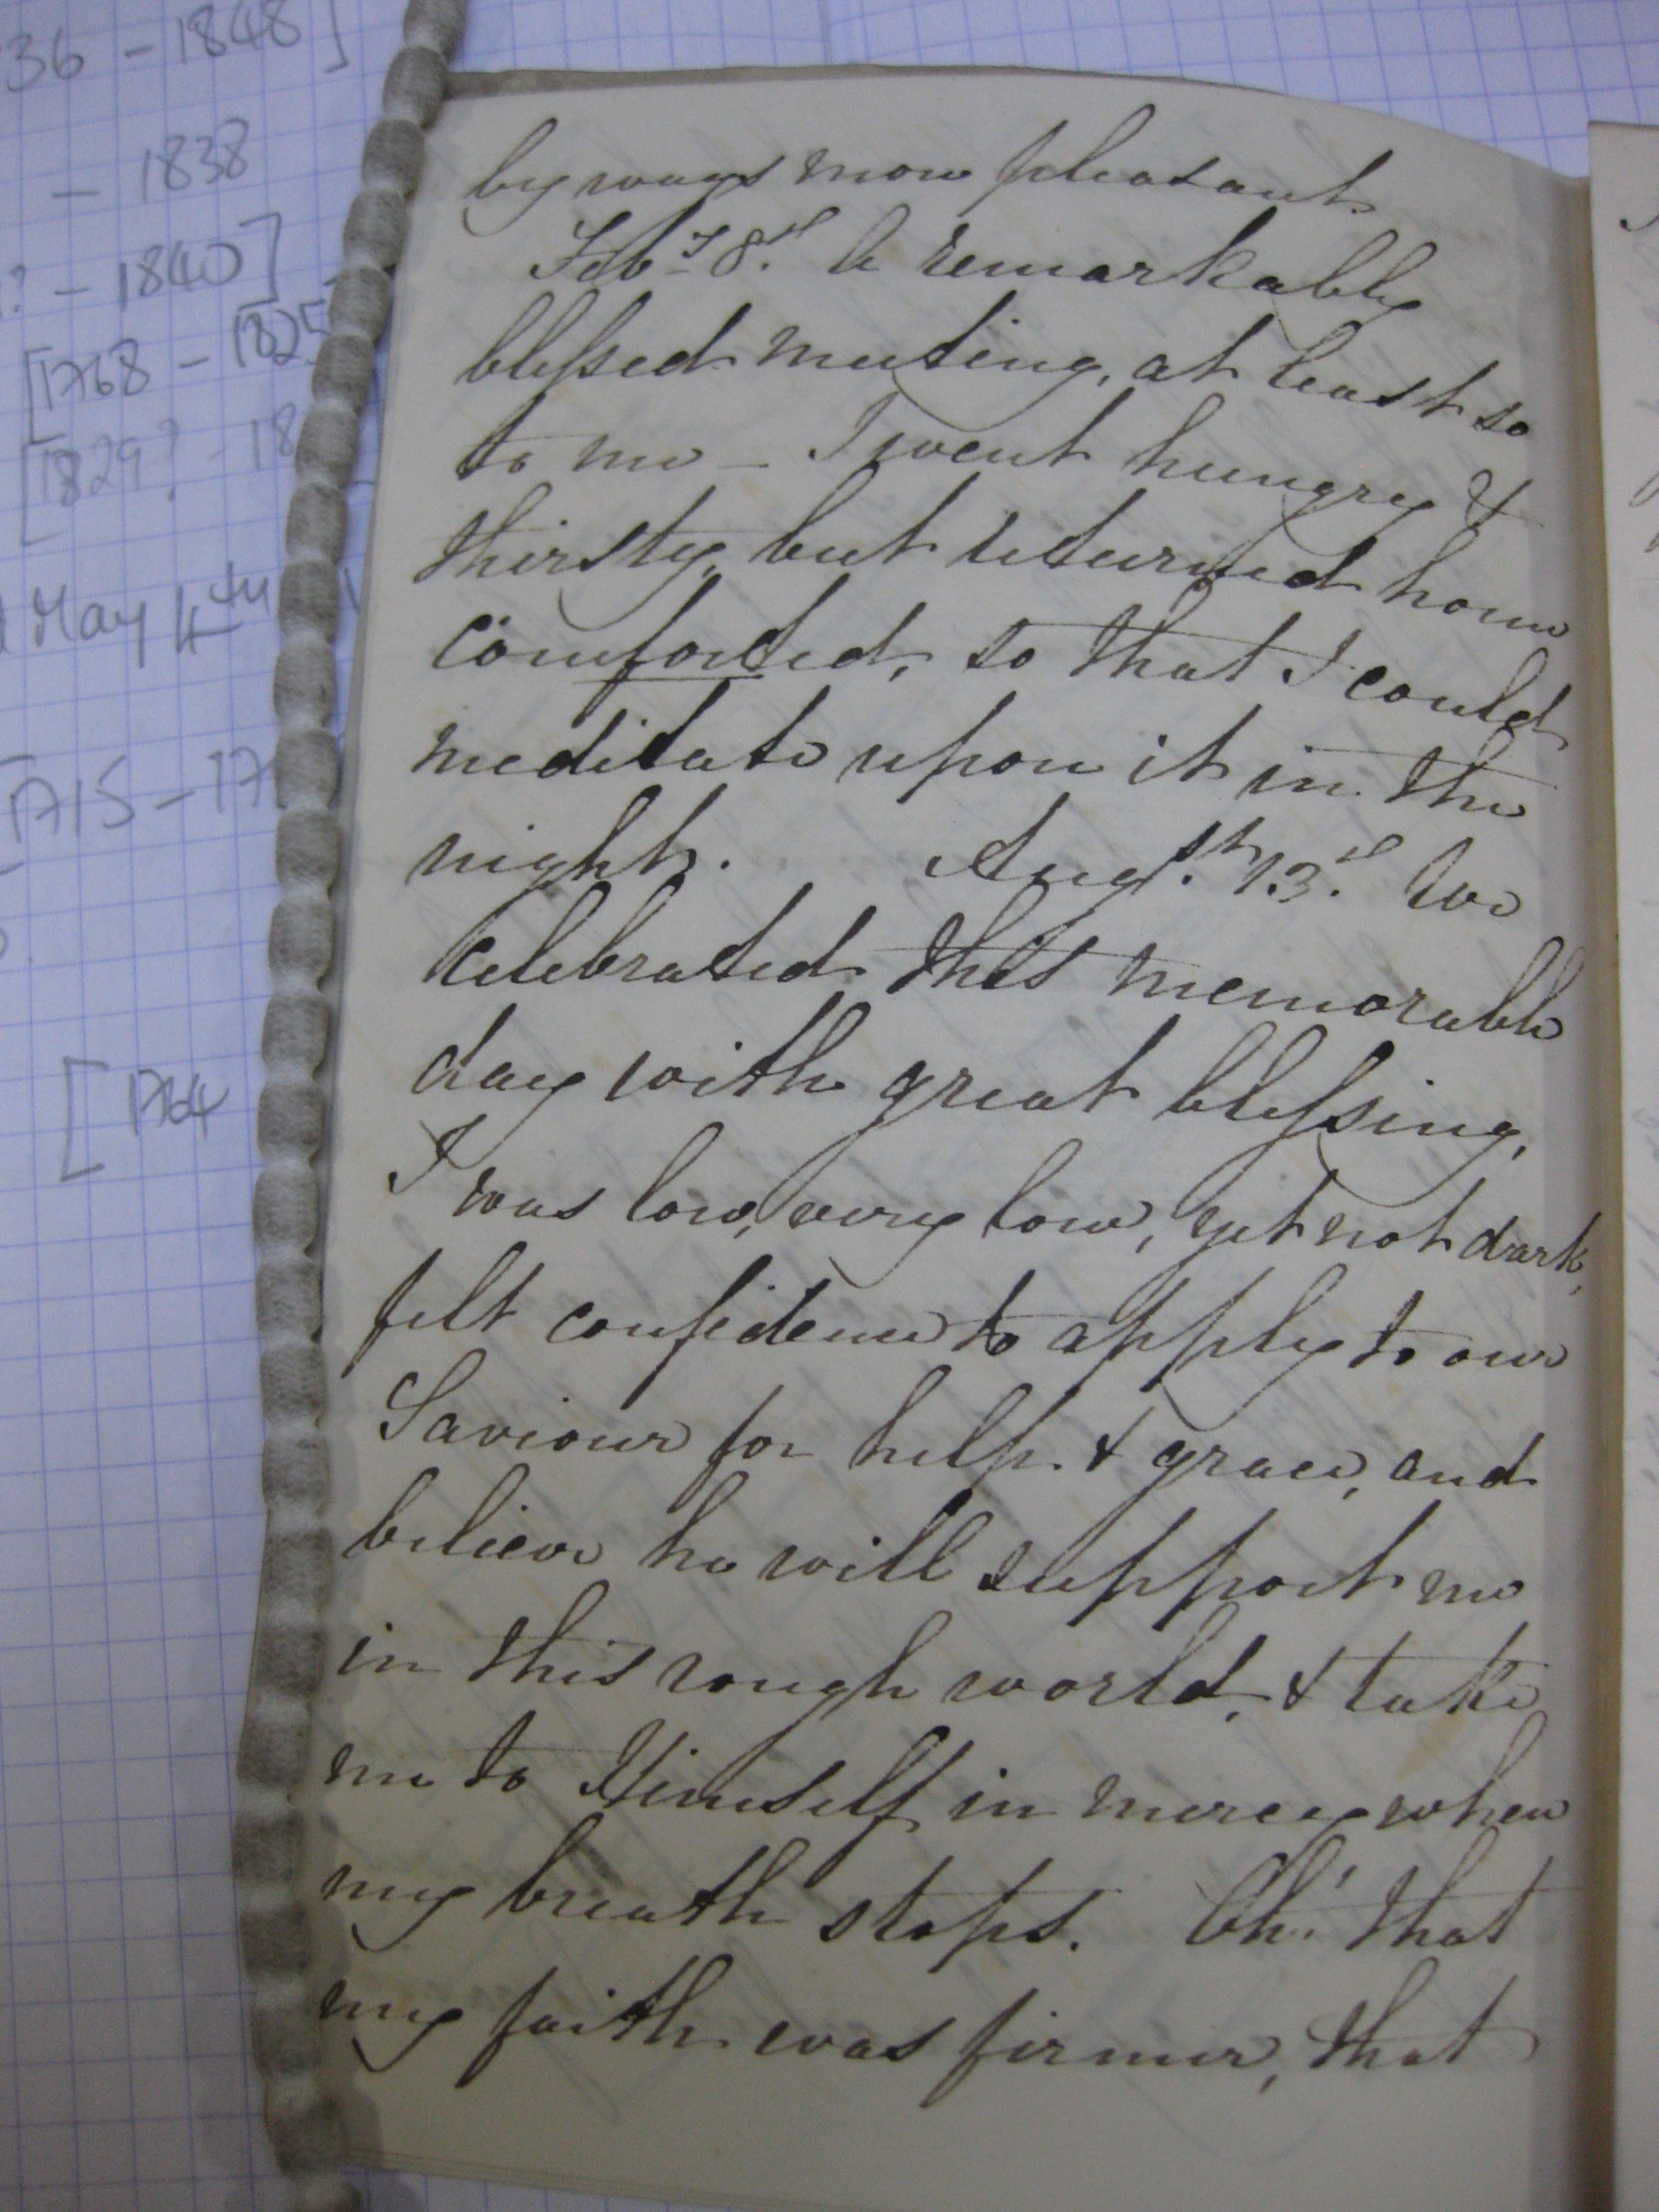 36 - 1848]
- 1838
? - 1840]
[1768 - 1825
[1829? - 18
May 4th
1715 - 17
[1764
by ways more pleasant
Feby 8th A remarkably
blessed meeting, at least so
to me - I went hungry &
thirsty, but returned home
comforted, so that I could
meditate upon it in the
night. Augst. 13th We
celebrated this memorable
day with great blessing,
I was low, very low, yet not dark,
felt confidence to apply to our
Saviour for help & grace, and
believe he will support me
in this rough world, & take
me to Himself in mercy when
my breath stops. Oh! that
my faith was firmer, that